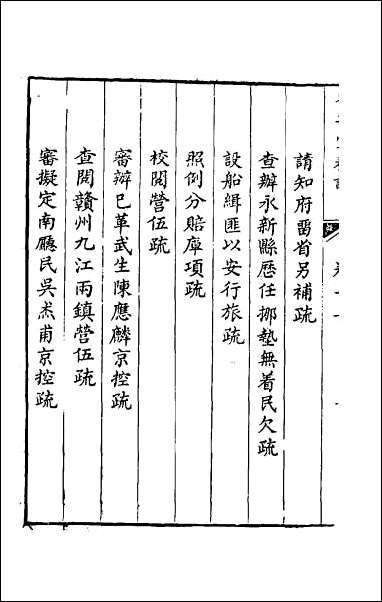 請知府留省另補疏
查辦永新縣歷任挪墊無着民欠疏
設船緝匪以安行旅疏
照例分賠庫項疏
校閱營伍疏
審辦已革武生陳應麟京控疏
查閱贛州九江兩鎮營伍疏
審擬定南廳民吳烝甫京控疏